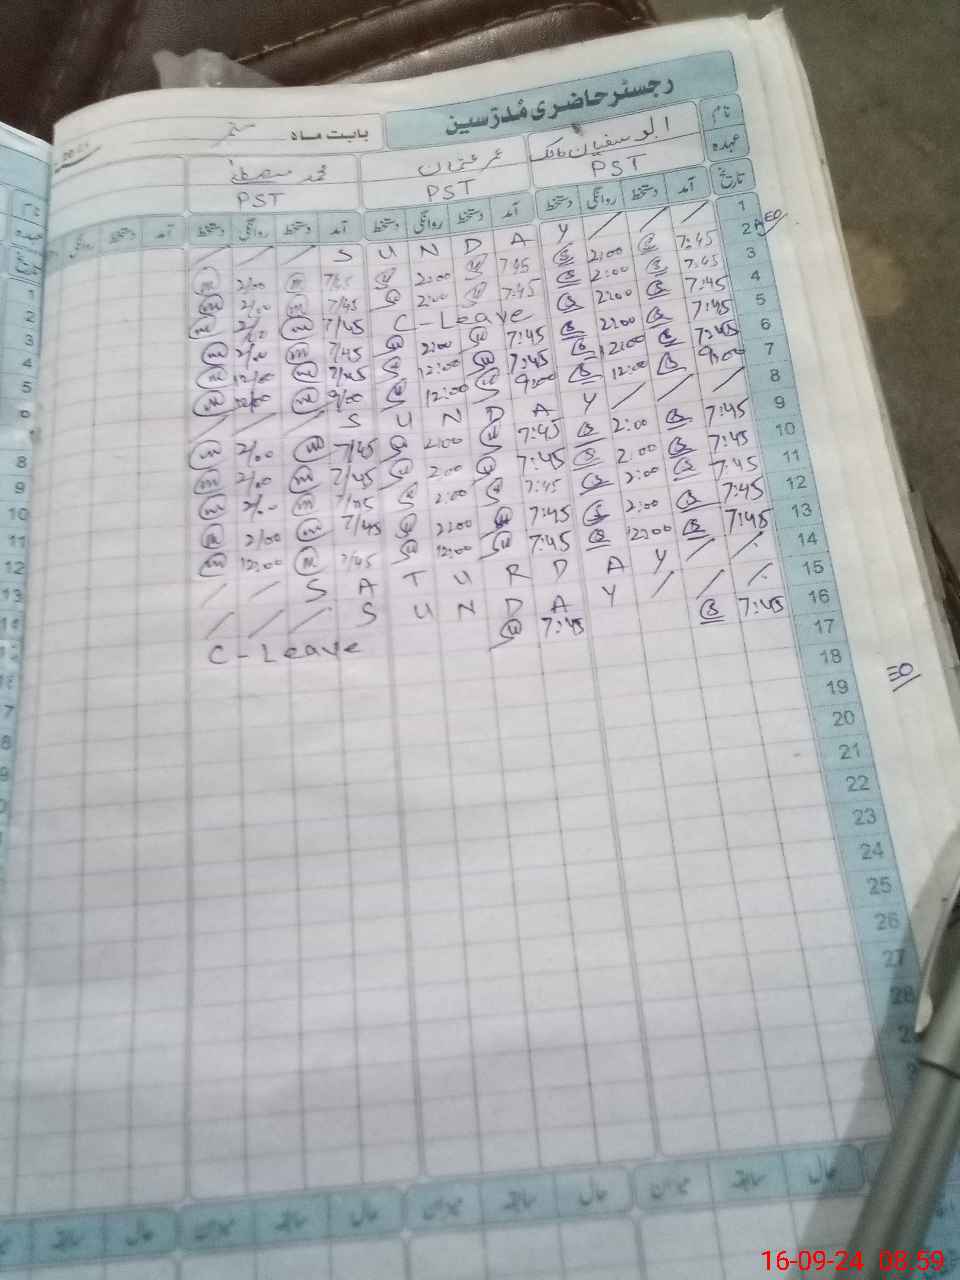 رجسٹر حاضری مُدرّسین
بابت ماہ ستمبر
نام ابو سفیان مالک عمر عثمان محمد مصطفیٰ
عہدہ PST PST PST
تاریخ آمد دستخط روانگی دستخط آمد دستخط روانگی دستخط آمد دستخط روانگی دستخط آمد دستخط روانگی
1 / / / S U N D A Y / / /
2 7:45 2:00 7:45 2:00 7/45 2/00
3 7:45 2:00 7:45 2:00 7/45 2/00
4 7:45 2:00 C-Leave 7/45 2/00
5 7:45 2:00 7:45 2:00 7/45 2/00
6 7:45 12:00 7:45 12:00 7/45 12/00
7 9:00 12:00 9:00 12:00 9/00 12/00
8 / / / S U N D A Y / / /
9 7:45 2:00 7:45 2:00 7/45 2/00
10 7:45 2:00 7:45 2:00 7/45 2/00
11 7:45 2:00 7:45 2:00 7/45 2/00
12 7:45 2:00 7:45 2:00 7/45 2/00
13 7:45 12:00 7:45 12:00 7/45 12:00
14 / / S A T U R D A Y / /
15 / / / S U N D A Y / / /
16 7:45 7:45 C-Leave
17
18
19
20
21
22
23
24
25
26
27
28
حال سابقہ میزان حال سابقہ میزان حال سابقہ میزان حال سابقہ
16-09-24 08:59